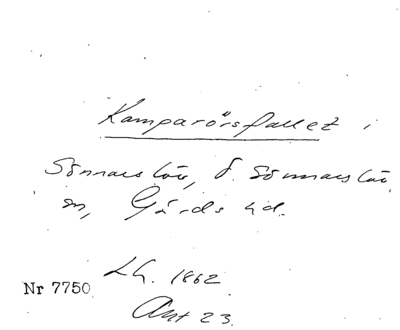 Kamparörsfallet i
Sönnarslöv, Ö. Sönnarslöv
sn, Gärds hd.
1862
Nr 7750
Akt 23.